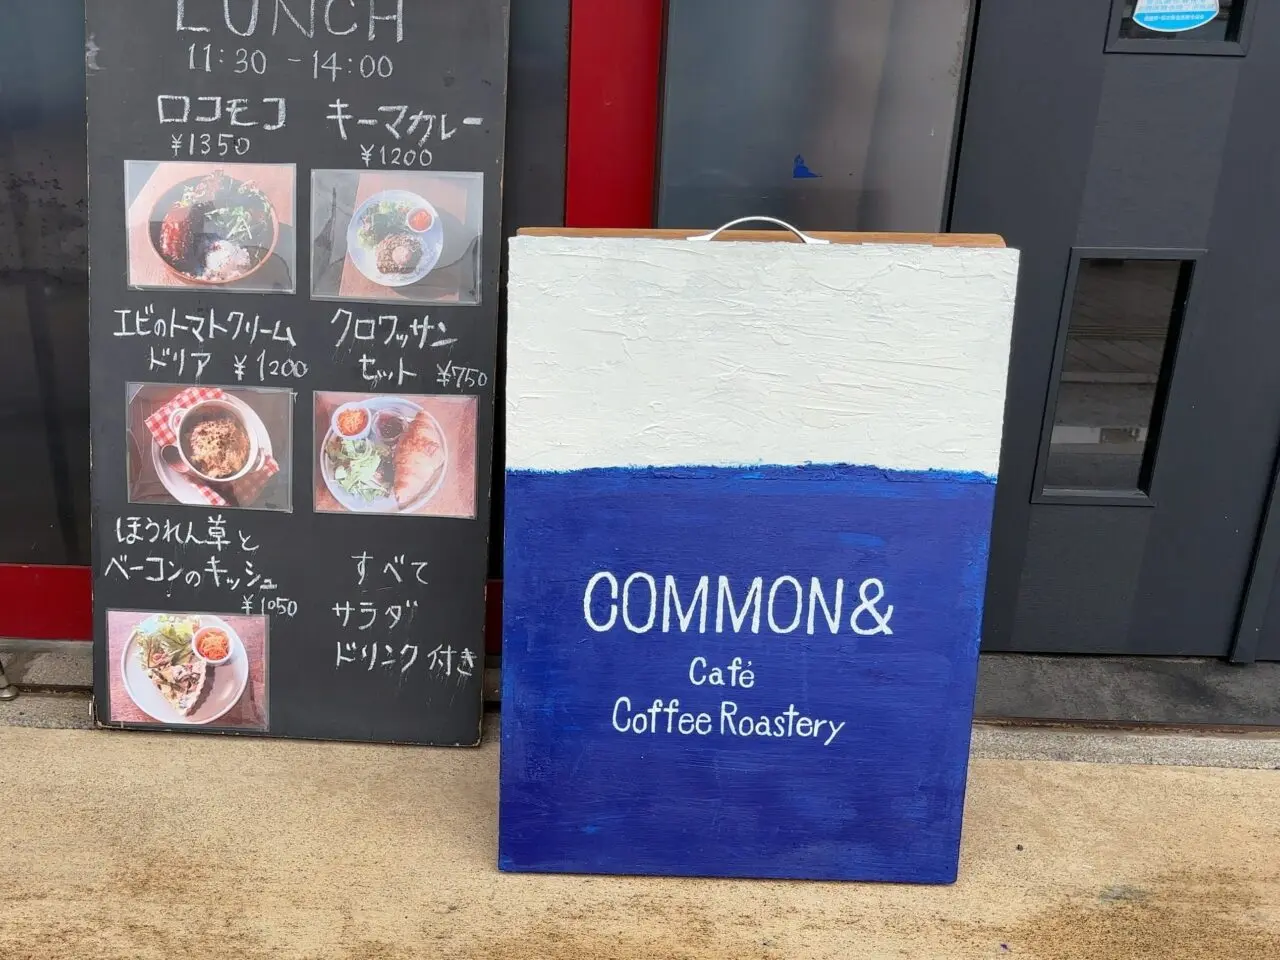 LUNCH
11:30 - 14:00
ロコモコ
¥1350
キーマカレー
¥1200
エビのトマトクリーム
ドリア ¥1200
クロワッサン
セット ¥750
ほうれん草と
ベーコンのキッシュ
¥1050
すべて
サラダ
ドリンク付き
COMMON&
Café
Coffee Roastery